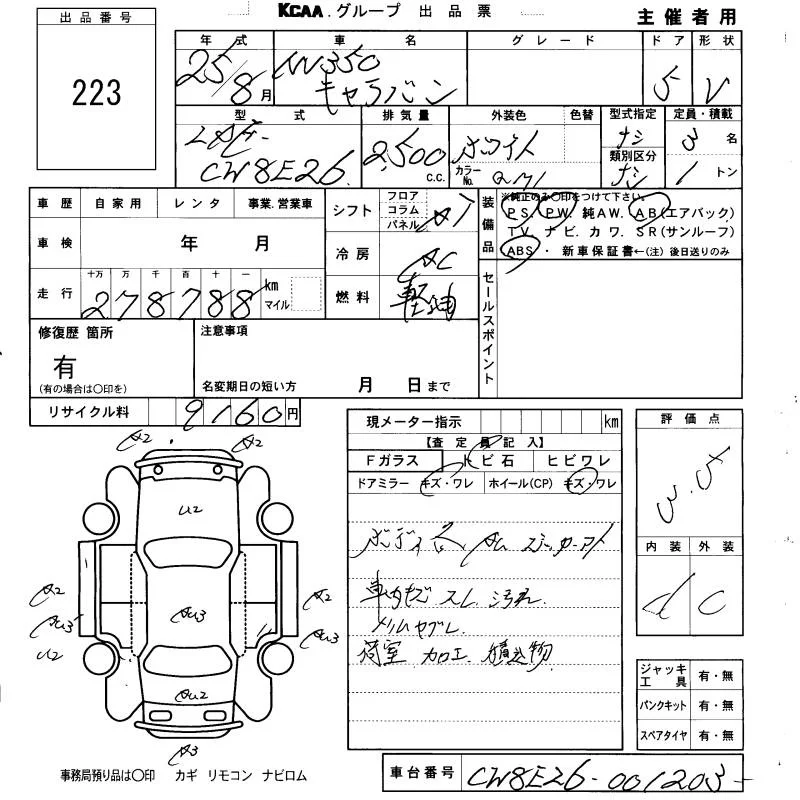 KCAA.グループ 出品票
主催者用
出品番号
223
年式 車名 グレード ドア 形状
25/8月 NV350 キャラバン 5 V
型式 排気量 外装色 色替 型式指定 定員・積載
LDF- CW8E26 2,500 c.c. ホワイト カラーNo. QM1 ナシ 3名
類別区分 ナシ 1トン
車歴 自家用 レンタ 事業.営業車
シフト フロア コラム パネル AT
装備品 ※純正のみ〇印をつけて下さい。
PS. PW. 純AW. AB(エアバック)
TV. ナビ. カワ. SR(サンルーフ)
ABS・新車保証書←(注)後日送りのみ
車検 年 月
冷房 AC
走行 十万 万 千 百 十 一
278788 km マイル
燃料 軽油
セールスポイント
修復歴 箇所
有
(有の場合は〇印を)
注意事項
名変期日の短い方 月 日まで
リサイクル料 9160円
現メーター指示 km
【査定員記入】
Fガラス トビ石 ヒビワレ
ドアミラー キズ・ワレ ホイール(CP) キズ・ワレ
車内 スレ 汚れ
荷室 加工 積込物
評価点
3.5
内装 外装
d C
ジャッキ工具 有・無
パンクキット 有・無
スペアタイヤ 有・無
A2 A2
U2
A2 A2
AU3 AU3 AU3
U2
AU2
A3
事務局預り品は〇印 カギ リモコン ナビロム
車台番号 CW8E26-001203-